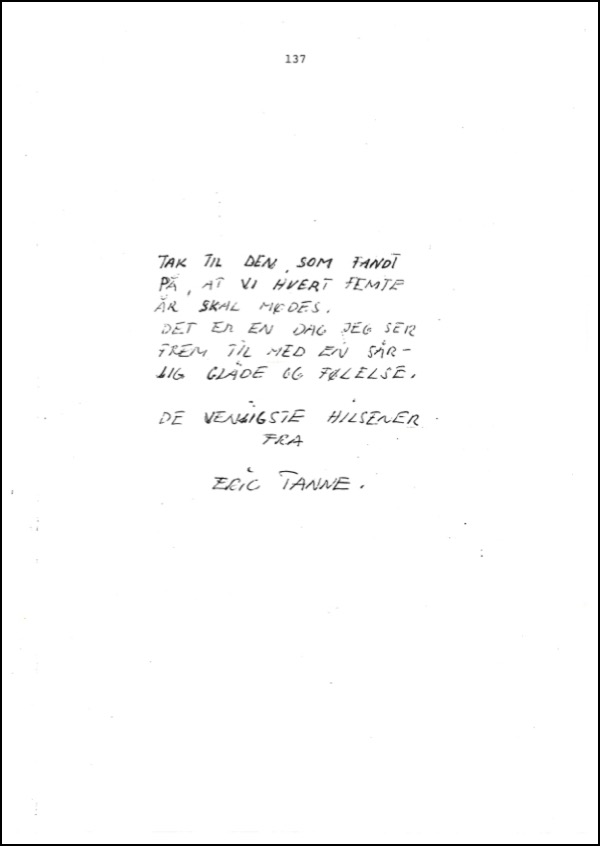 137
TAK TIL DEN, SOM FANDT
PÅ, AT VI HVERT FEMTE
ÅR SKAL MØDES.
DET ER EN DAG JEG SER
FREM TIL MED EN SÄR-
LIG GLÄDE OG FØLELSE.
DE VENLIGSTE HILSENER
FRA
ERIC TANNE.